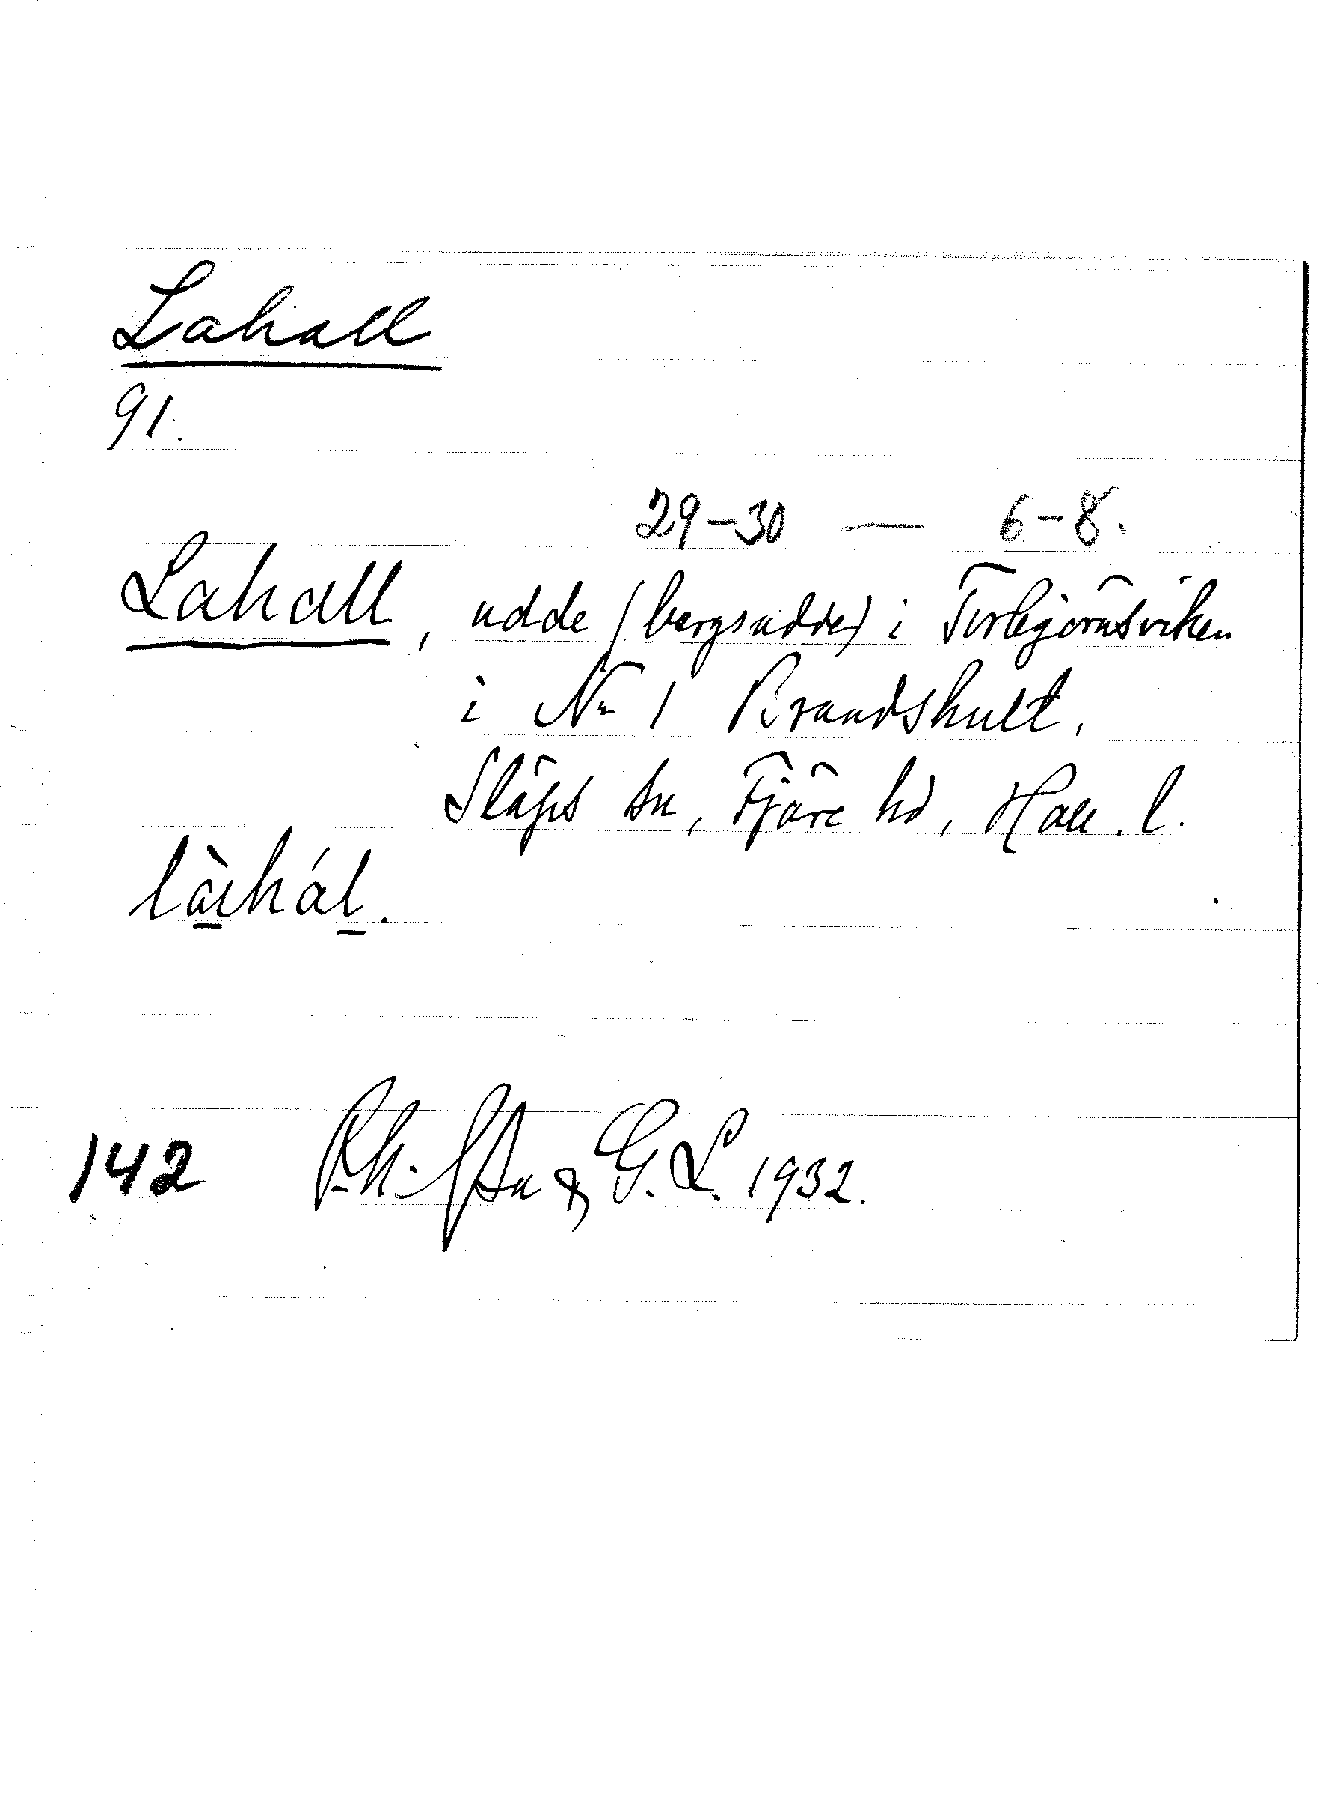 Lahall
91.
29-30 — 6-8.
Lahall, udde (bergsudde) i Torbjörnsviken
i Nr 1 Brandshult,
Släps sn, Fjäre hd, Hall. l.
làhál.
142 G. L. 1932.